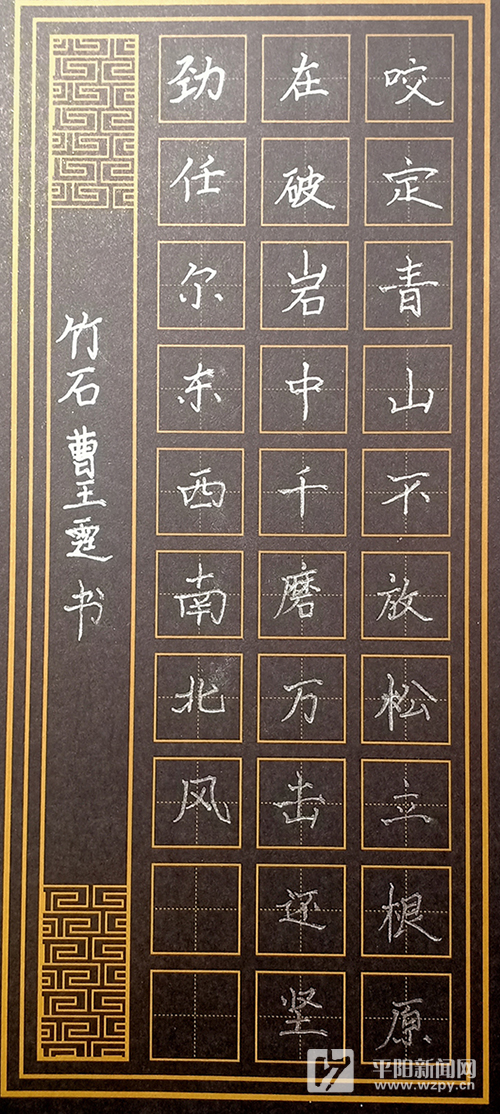 咬定青山不放松立根原
在破岩中千磨万击还坚
劲任尔东西南北风
竹石 曹王霆 书
平阳新闻网
www.wzpy.cn